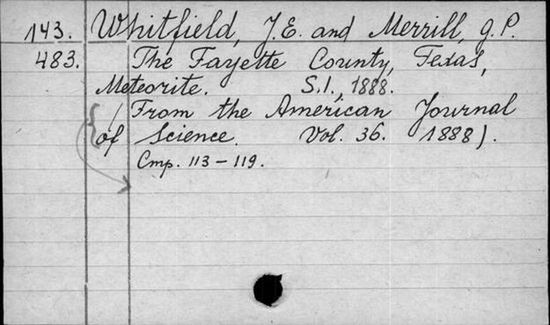 143. Whitfield, J.E. and Merrill, G.P.
483. The Fayette County, Texas,
Meteorite. S.l., 1888.
(From the American Journal
of Science. Vol. 36. 1888).
Стр. 113-119.